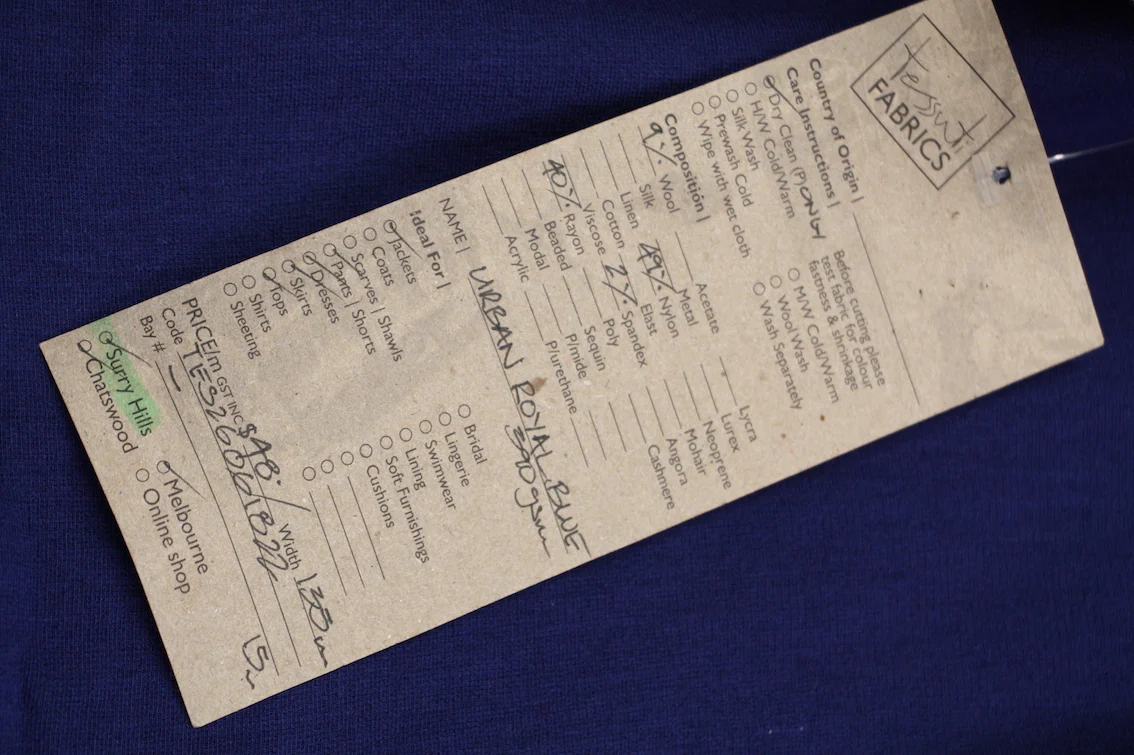 tessuti
FABRICS
Country of Origin |
Care Instructions |
Dry Clean (P) ONLY
H/W Cold/Warm
Silk Wash
Prewash Cold
Wipe with wet cloth
Before cutting please
test fabric for colour
fastness & shrinkage
M/W Cold/Warm
Wool Wash
Wash Separately
Composition |
9% Wool
Silk
Linen
Cotton
Viscose
40% Rayon
Beaded
Modal
Acrylic
Acetate
Metal
49% Nylon
Elast
2% Spandex
Poly
Sequin
P/mide
P/urethane
Lycra
Lurex
Neoprene
Mohair
Angora
Cashmere
NAME | URBAN ROYAL BLUE
390gsm
Ideal For |
Jackets
Coats
Scarves | Shawls
Pants | Shorts
Dresses
Skirts
Tops
Shirts
Sheeting
Bridal
Lingerie
Swimwear
Lining
Soft Furnishings
Cushions
PRICE/m GST INC $48 Width 135
Code TES26001822
Bay # 15
Surry Hills
Chatswood
Melbourne
Online shop